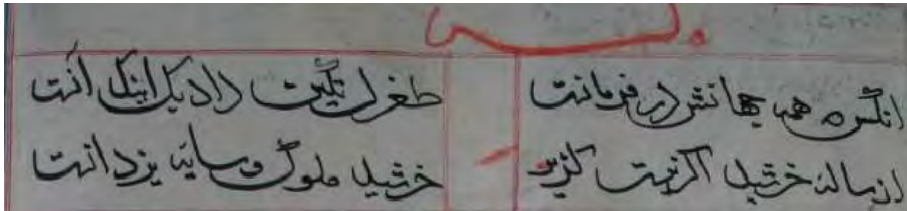 انکس که همه جهانش در فرمانست طغرل تکین داد بک اینک انست
از سایه خرشید اکر نیست کزیر خرشید ملوک و سایه یزدانست